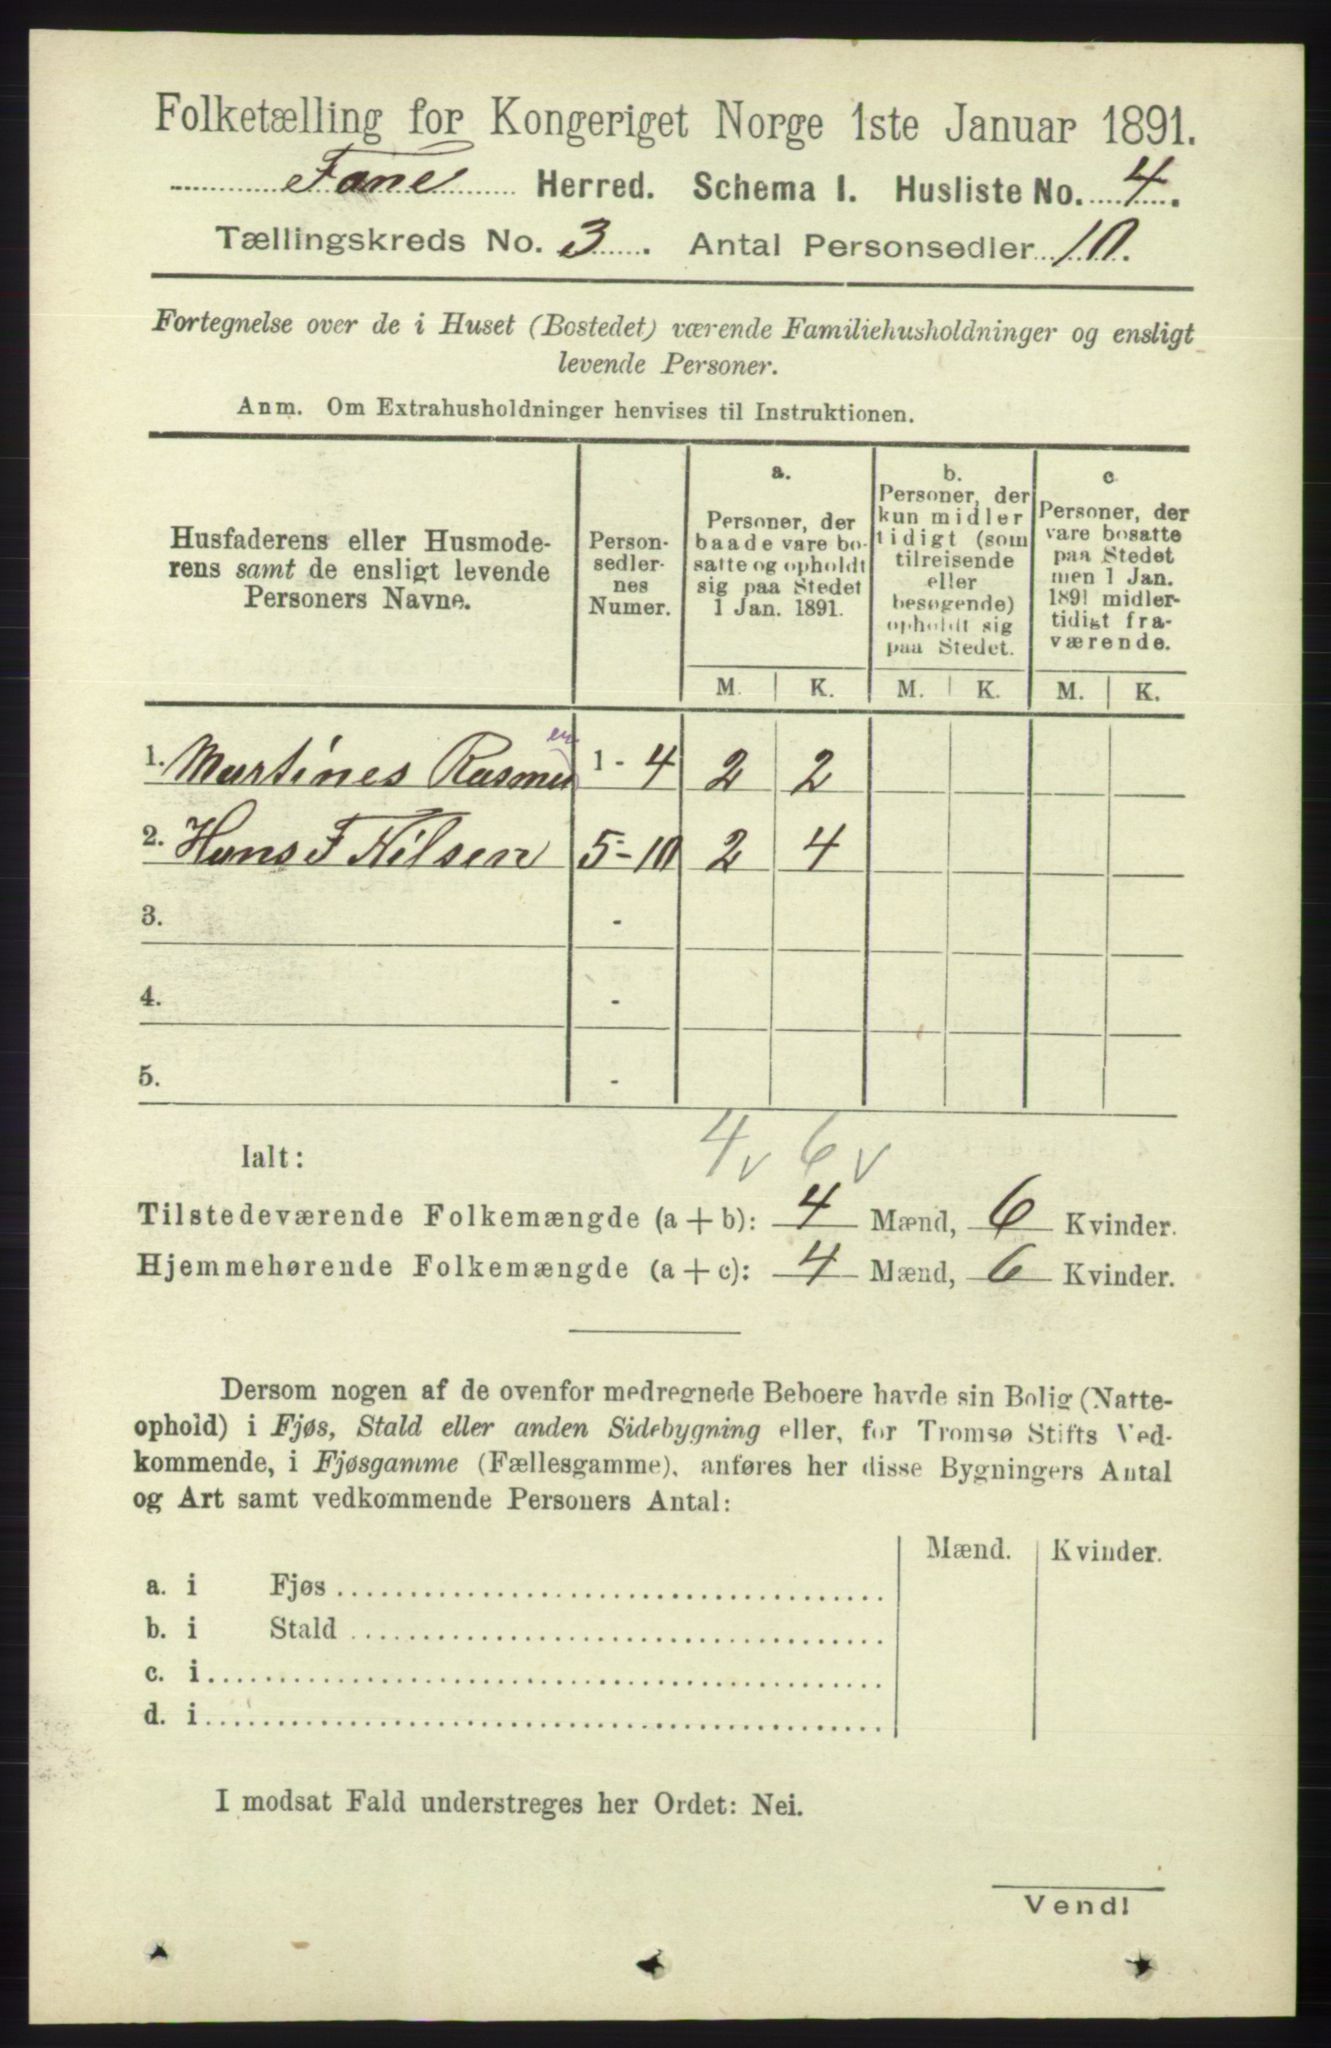 Folketælling for Kongeriget Norge 1ste Januar 1891.
Fane Herred. Schema I. Husliste No. 4.
Tællingskreds No. 3. Antal Personsedler 10.
Fortegnelse over de i Huset (Bostedet) værende Familiehusholdninger og ensligt
levende Personer.
Anm. Om Extrahusholdninger henvises til Instruktionen.
Husfaderens eller Husmode-
rens samt de ensligt levende
Personers Navne.
Person-
sedler-
nes
Numer.
a.
Personer, der
baade vare bo-
satte og opholdt
sig paa Stedet
1 Jan. 1891.
b.
Personer, der
kun midler
tidigt (som
tilreisende
eller
besøgende)
opholdt sig
paa Stedet.
c
Personer, der
vare bosatte
paa Stedet
men 1 Jan.
1891 midler-
tidigt fra-
værende.
M. K. M. K. M. K.
en
1. Martines Rasmus 1 - 4 2 2
2. Hans F Nilsen 5 - 10 2 4
3. -
4. -
5. -
4 v 6 v
Ialt:
Tilstedeværende Folkemængde (a + b): 4 Mænd, 6 Kvinder.
Hjemmehørende Folkemængde (a + c): 4 Mænd, 6 Kvinder.
Dersom nogen af de ovenfor medregnede Beboere havde sin Bolig (Natte-
ophold) i Fjøs, Stald eller anden Sidebygning eller, for Tromsø Stifts Ved-
kommende, i Fjøsgamme (Fællesgamme), anføres her disse Bygningers Antal
og Art samt vedkommende Personers Antal:
Mænd. Kvinder.
a. i Fjøs
b. i Stald
c. i
d. i
I modsat Fald understreges her Ordet: Nei.
Vend!